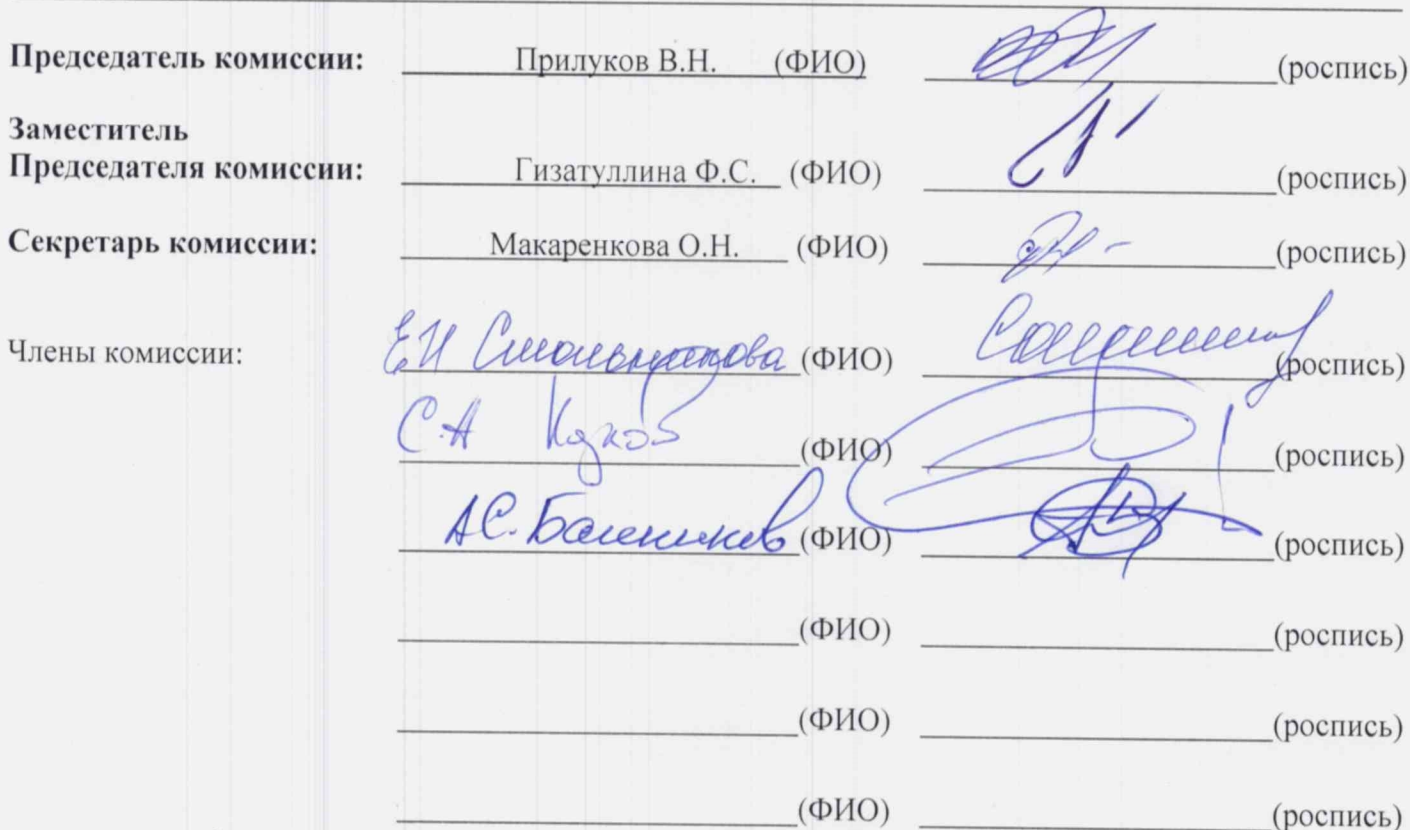 Председатель комиссии: Прилуков В.Н. (ФИО) (роспись)
Заместитель
Председателя комиссии: Гизатуллина Ф.С. (ФИО) (роспись)
Секретарь комиссии: Макаренкова О.Н. (ФИО) (роспись)
Члены комиссии: ЕН (ФИО) (роспись)
С.А (ФИО) (роспись)
А.С. (ФИО) (роспись)
(ФИО) (роспись)
(ФИО) (роспись)
(ФИО) (роспись)